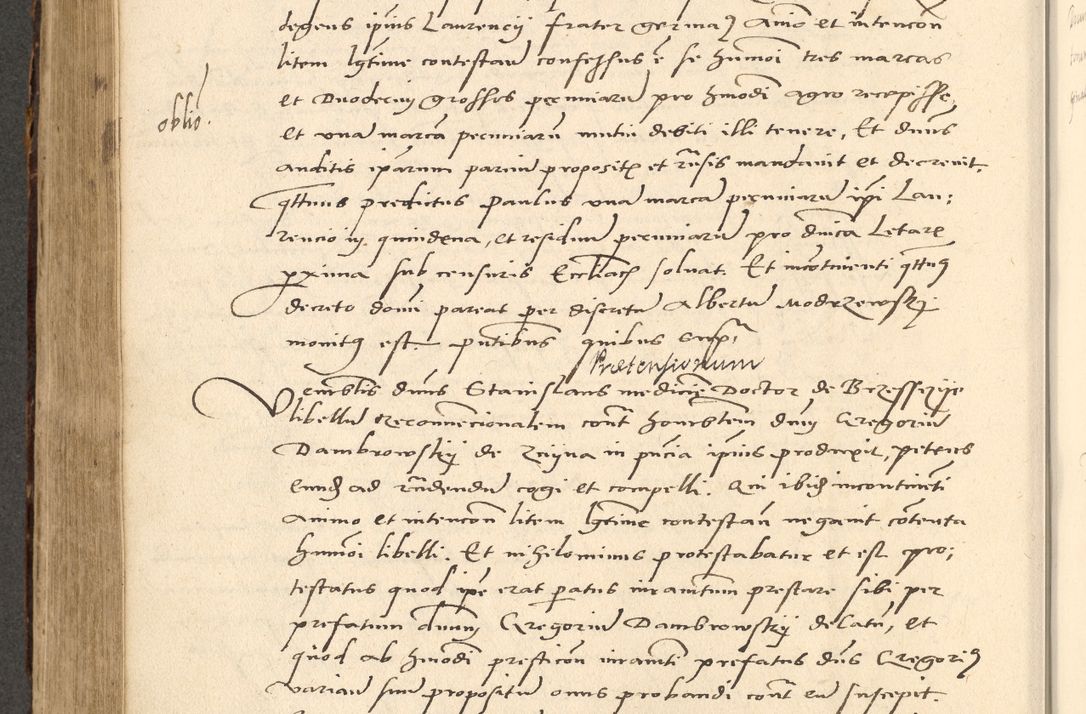 degens ipius Laurencij frater germa9 Animo et intencon
litem lgtime contestan confessus e se humoi tres marcas
et Duodecim grosses pecuniaru pro hmodi agro recepisse,
oblio.
et una marca pecuniaru mutui debiti illi tenere, Et dnus
auditis iparum parciu proposit et rnsis mandavit et decrevit,
qttnus predictus Paulus una marca pecuniaru ipi Lau:
rencio in quindena, et residuu pecuniaru pro dnica Letare
pxima sub censuris Eccliach solvat. Et incotinenti qttn9
decreto domi pareat per discretu Albertu Modrzewskij
monit9 est. pntibus quibus supra
Prætensionum
Venerablis dnus Stanislaus medicine Doctor de Brzessezije
libellu reconvencionalem cont honorabtem dnu Gregoriu
Dambrowskij de Znijna in pncia ipius produxit, petens
eund ad rndendu cogi et compelli. Qui ibid incontineti
animo et intencon litem lgtime contestan negavit cotenta
humoi libelli. Et nihilominus protestabatur et est pro:
testatus quod ipe erat patus iuramtum prestare sibi per
prefatum dnum Gregoriu Dambrowskij delatu, et
quod ab hmodi presticon iuramti prefatus dns Gregori9
varian suu propositu onus probandi cont eu suscepit.